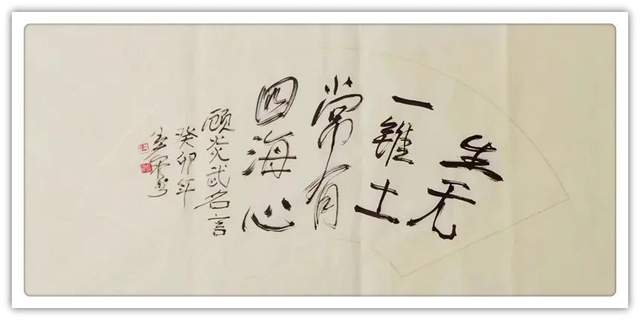 生无
一锥土
常有
四海心
顾炎武名言
癸卯年